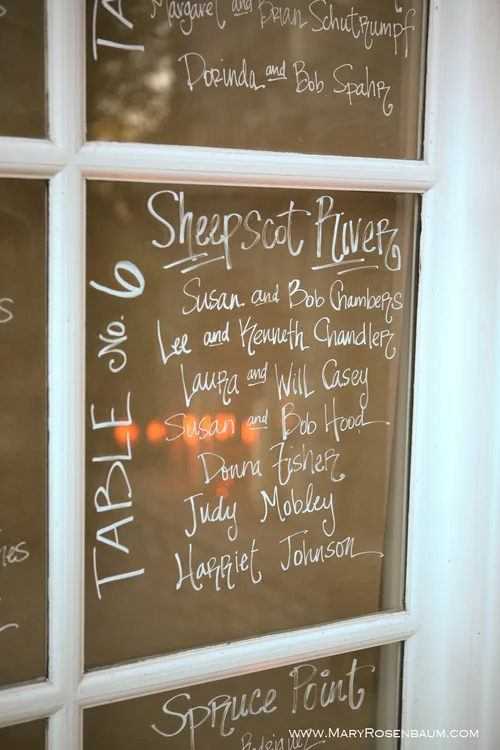 TA
Margaret and Brian Schutrumpf
Dorinda and Bob Spahr
TABLE No. 6
Sheepscot River
Susan and Bob Chambers
Lee and Kenneth Chandler
Laura and Will Casey
Susan and Bob Hood
Donna Fisher
Judy Mobley
Harriet Johnson
Spruce Point
Rodriguez
www.MaryRosenbaum.com